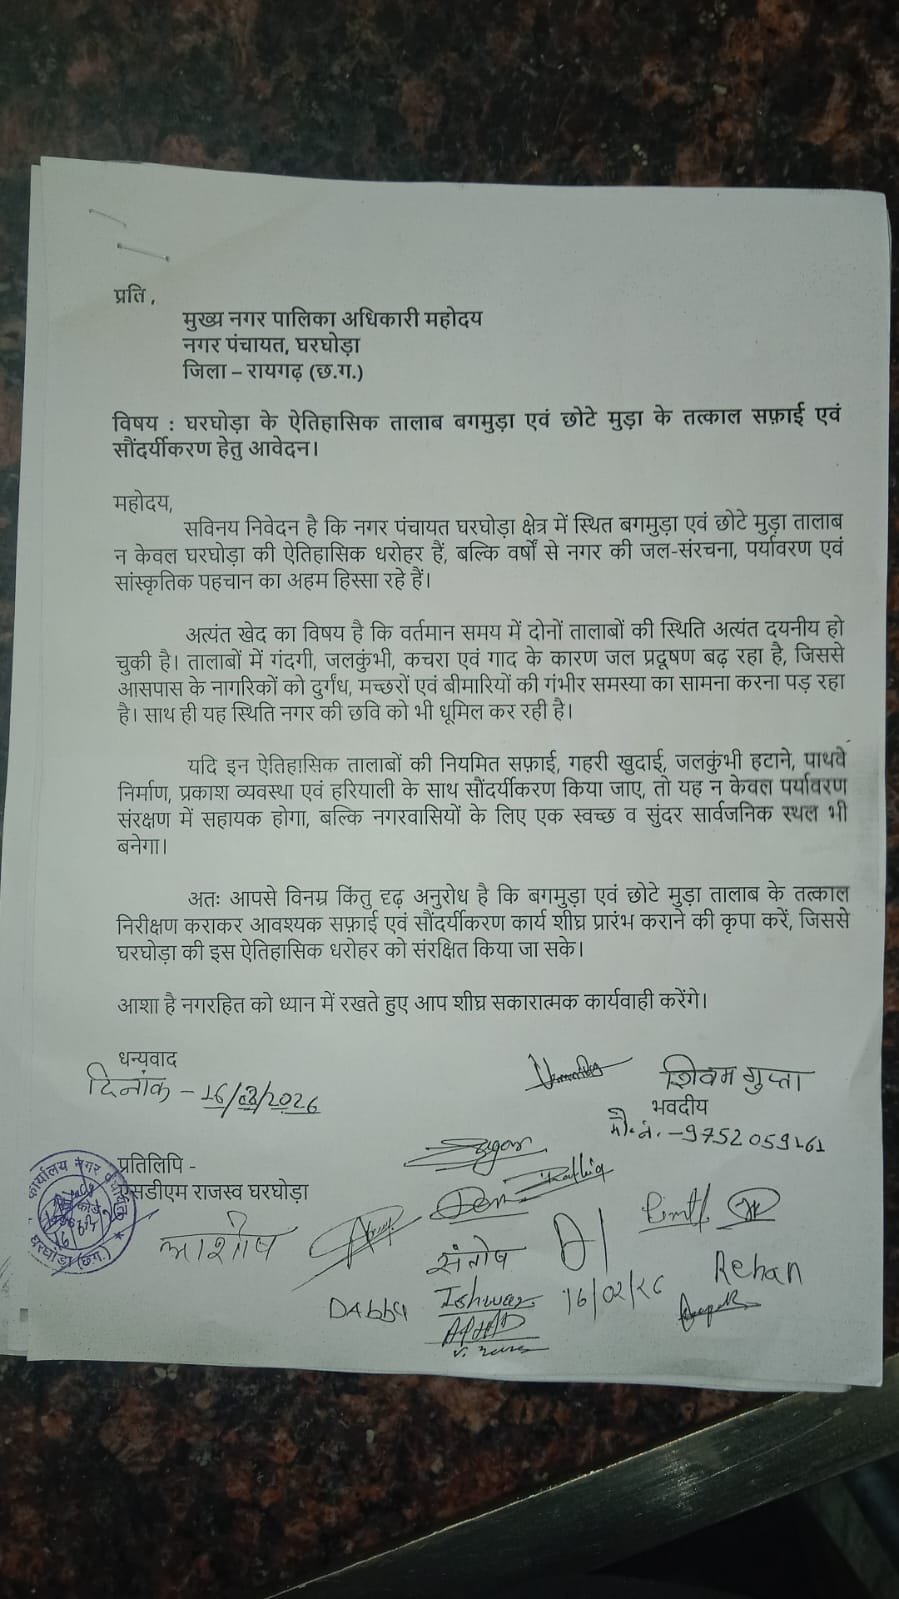 प्रति ,
मुख्य नगर पालिका अधिकारी महोदय
नगर पंचायत, घरघोड़ा
जिला – रायगढ़ (छ.ग.)
विषय : घरघोड़ा के ऐतिहासिक तालाब बगमुड़ा एवं छोटे मुड़ा के तत्काल सफ़ाई एवं
सौंदर्यीकरण हेतु आवेदन।
महोदय,
सविनय निवेदन है कि नगर पंचायत घरघोड़ा क्षेत्र में स्थित बगमुड़ा एवं छोटे मुड़ा तालाब
न केवल घरघोड़ा की ऐतिहासिक धरोहर हैं, बल्कि वर्षों से नगर की जल-संरचना, पर्यावरण एवं
सांस्कृतिक पहचान का अहम हिस्सा रहे हैं।
अत्यंत खेद का विषय है कि वर्तमान समय में दोनों तालाबों की स्थिति अत्यंत दयनीय हो
चुकी है। तालाबों में गंदगी, जलकुंभी, कचरा एवं गाद के कारण जल प्रदूषण बढ़ रहा है, जिससे
आसपास के नागरिकों को दुर्गंध, मच्छरों एवं बीमारियों की गंभीर समस्या का सामना करना पड़ रहा
है। साथ ही यह स्थिति नगर की छवि को भी धूमिल कर रही है।
यदि इन ऐतिहासिक तालाबों की नियमित सफ़ाई, गहरी खुदाई, जलकुंभी हटाने, पाथवे
निर्माण, प्रकाश व्यवस्था एवं हरियाली के साथ सौंदर्यीकरण किया जाए, तो यह न केवल पर्यावरण
संरक्षण में सहायक होगा, बल्कि नगरवासियों के लिए एक स्वच्छ व सुंदर सार्वजनिक स्थल भी
बनेगा।
अतः आपसे विनम्र किंतु दृढ़ अनुरोध है कि बगमुड़ा एवं छोटे मुड़ा तालाब के तत्काल
निरीक्षण कराकर आवश्यक सफ़ाई एवं सौंदर्यीकरण कार्य शीघ्र प्रारंभ कराने की कृपा करें, जिससे
घरघोड़ा की इस ऐतिहासिक धरोहर को संरक्षित किया जा सके।
आशा है नगरहित को ध्यान में रखते हुए आप शीघ्र सकारात्मक कार्यवाही करेंगे।
धन्यवाद
दिनांक - 16/02/2026
शिवम गुप्ता
भवदीय
मो.नं. - 9752059161
प्रतिलिपि -
एसडीएम राजस्व घरघोड़ा
कार्यालय नगर पंचायत
घरघोड़ा (छ.ग.)
आशीष
संतोष
Dabby
Ishwar
16/02/26
Rehan